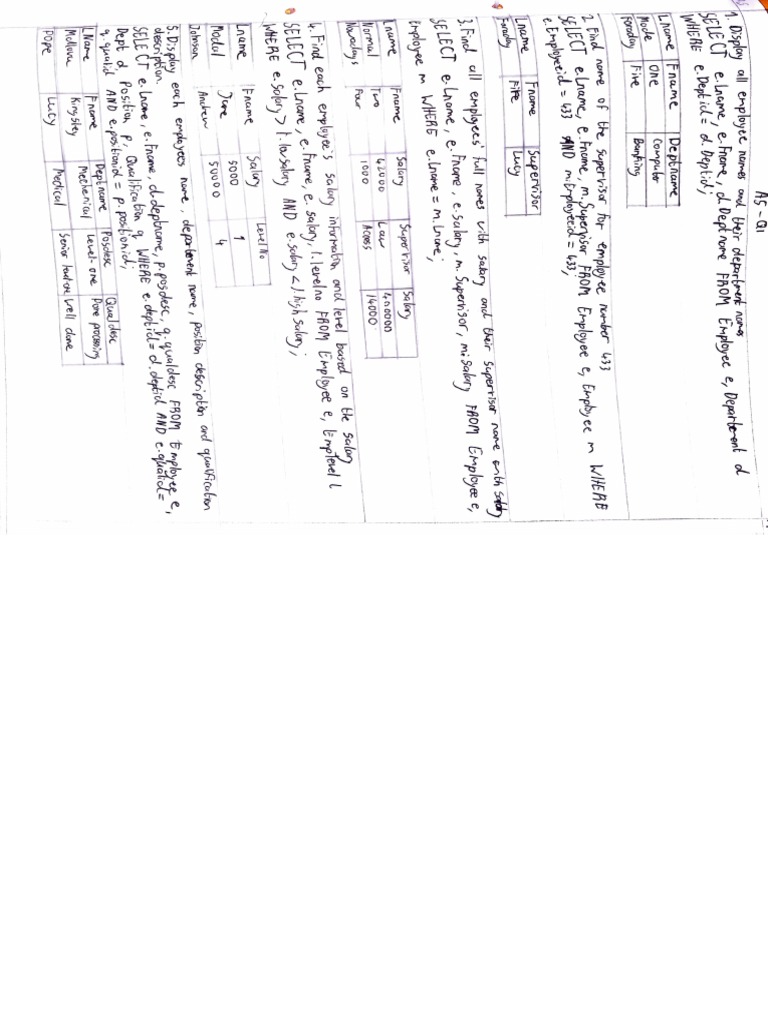 A5 - Q1
1. Display all employee names and their department names
SELECT e.Lname, e.Fname, d.Deptname FROM Employee e, Department d
WHERE e.Deptid = d.Deptid;
Lname Fname Deptname
Mode One Computer
Faraday Five Banking
2. Find name of the supervisor for employee number 433
SELECT e.Lname, e.Fname, m.Supervisor FROM Employee e, Employee m WHERE
e.Employeeid = 433 AND m.Employeeid = 433;
Lname Fname Supervisor
Faraday Five Lucy
3. Find all employees' full names with salary and their supervisor name with salary
SELECT e.Lname, e.Fname, e.Salary, m.Supervisor, m.Salary FROM Employee e,
Employee m WHERE e.Lname = m.Lname;
Lname Fname Salary Supervisor Salary
Normal Two 42000 Law 400000
Nowadays Four 1000 Across 14000
4. Find each employee's salary information and level based on the salary
SELECT e.Lname, e.Fname, e.salary, l.levelno FROM Employee e, Emplevel l
WHERE e.salary > l.lowsalary AND e.salary < l.highsalary;
Lname Fname Salary LevelNo
Model June 5000 1
Johnson Andrew 50000 4
5. Display each employees name, department name, position description and qualification
description.
SELECT e.lname, e.Fname, d.deptname, p.posdesc, q.qualdesc FROM Employee e,
Dept d, Position p, Qualification q WHERE e.deptid = d.deptid AND e.qualid =
q.qualid AND e.positionid = p.positionid;
LName Fname Deptname Posdesc Qualdesc
Kingsley Mechanical Level-one processing
Pope Lucy Medical Senior well done